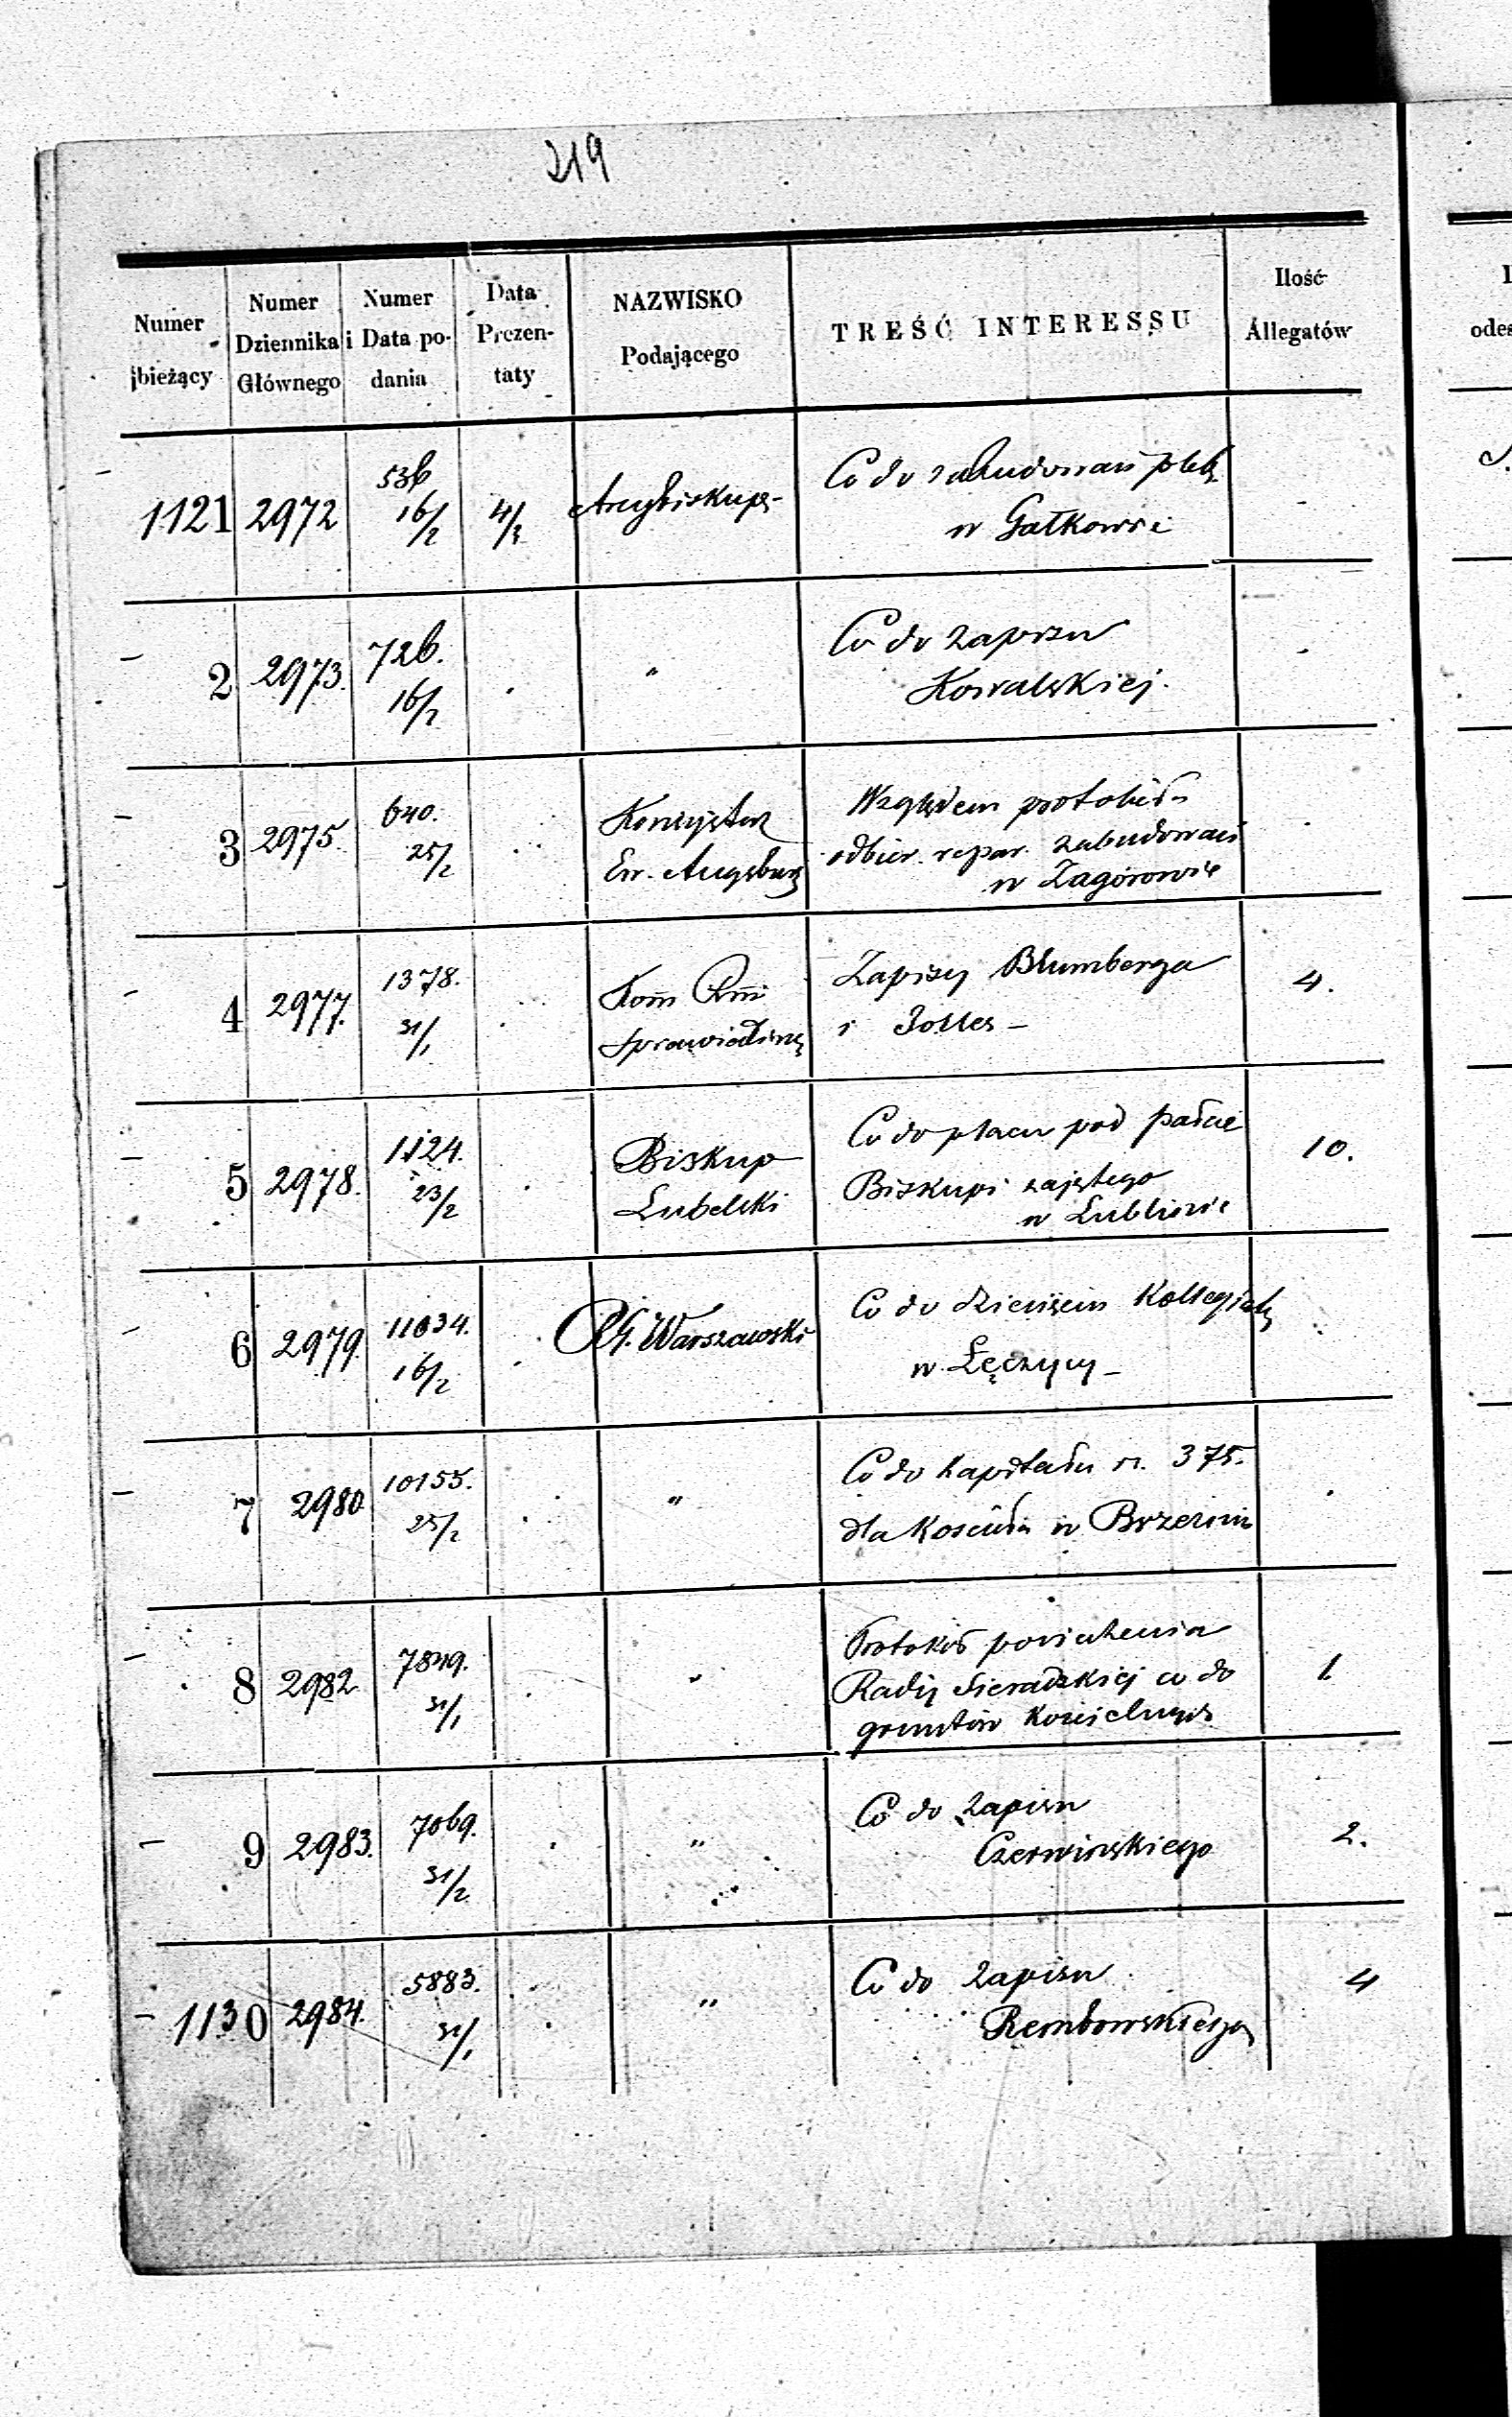 219
Numer bieżący
Numer Dziennika Głównego
Numer i Data podania
Data Prezentaty
NAZWISKO Podającego
TREŚĆ INTERESSU
Ilość Allegatów
1121 2972 536 16/2 4/3 Arcybiskup Co do zabudowań pleb.
w Gałkowie
2 2973. 726. 16/2 " Co do zapisu
Kowalskiej.
3 2975. 640. 25/2 Konsystorz Względem protokółu
Ew. Augsburg odbior. repar. zabudowań
w Zagórowie
4 2977. 1378. 31/1 Kom Rzi Zapisy Blumberga 4.
Sprawiedliw. i
5 2978. 1124. 23/2 Biskup Co do placu pod pałac 10.
Lubelski Biskupi zajętego
w Lublinie
6 2979. 11034. 16/2 RG. Warszawski Co do dziesięcin Kollegiaty
w Łęczycy
7 2980 10155. 25/2 " Co do kapitału r. 375.
dla Kościoła w
8 2982 7849. 31/1 " Protokół posiedzenia 1
Rady Sieradzkiej co do
gruntów kościelnych
9 2983. 7069. 31/2 " Co do zapisu 2.
Czerwińskiego
1130 2984. 5883. 31/1 " Co do zapisu 4
Rembowskiego